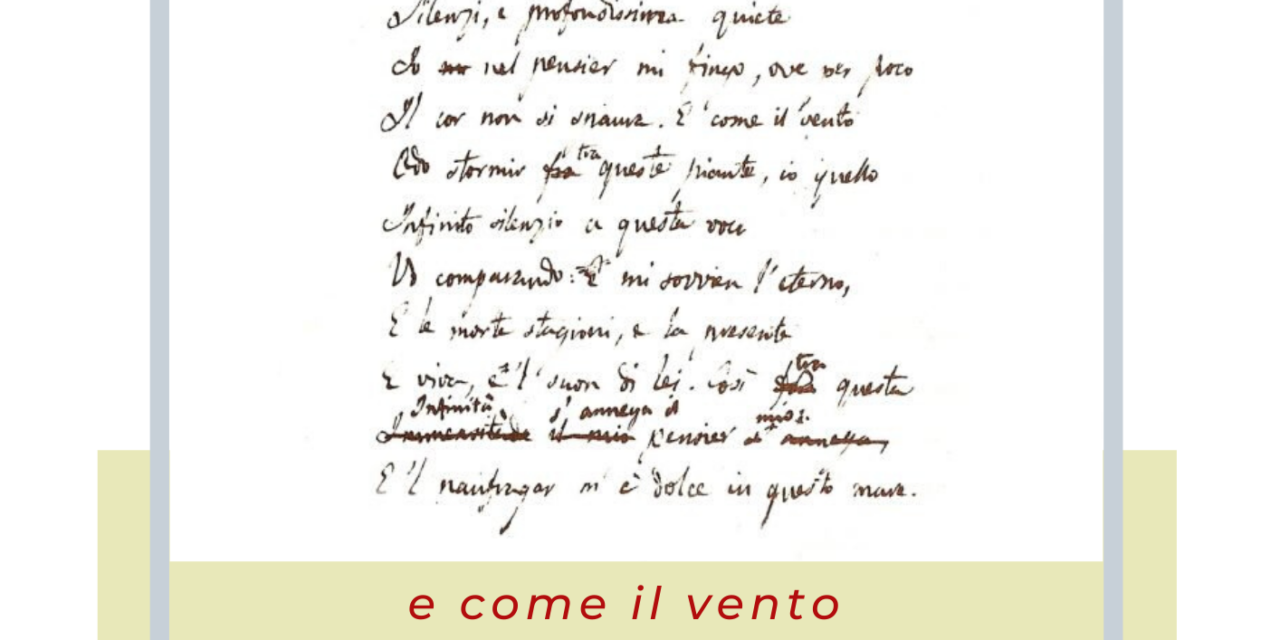 Silenzi, e profondissima quiete
Io nel pensier mi fingo, ove per poco
Il cor non si spaura. E come il vento
Odo stormir fra tra queste piante, io quello
Infinito silenzio a questa voce
Vo comparando: E mi sovvien l'eterno,
E le morte stagioni, e la presente
E viva, e 'l suon di lei. Così fra tra questa
Infinità s'annega il mio:
Immensitade il mio pensier s' annega,
E 'l naufragar m'è dolce in questo mare.
e come il vento